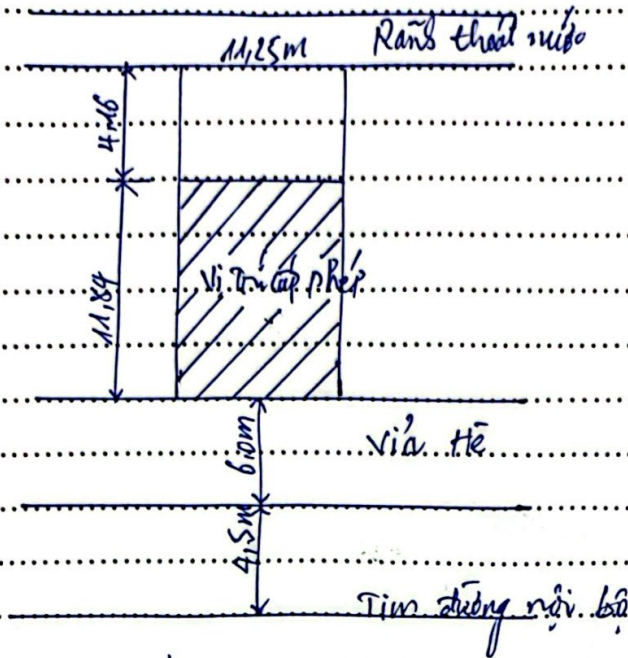 Rãnh thoát nước
11,25m
4.16
11,84
Vị trí cấp phép
6,0m
Vỉa Hè
4,5m
Tim đường nội bộ